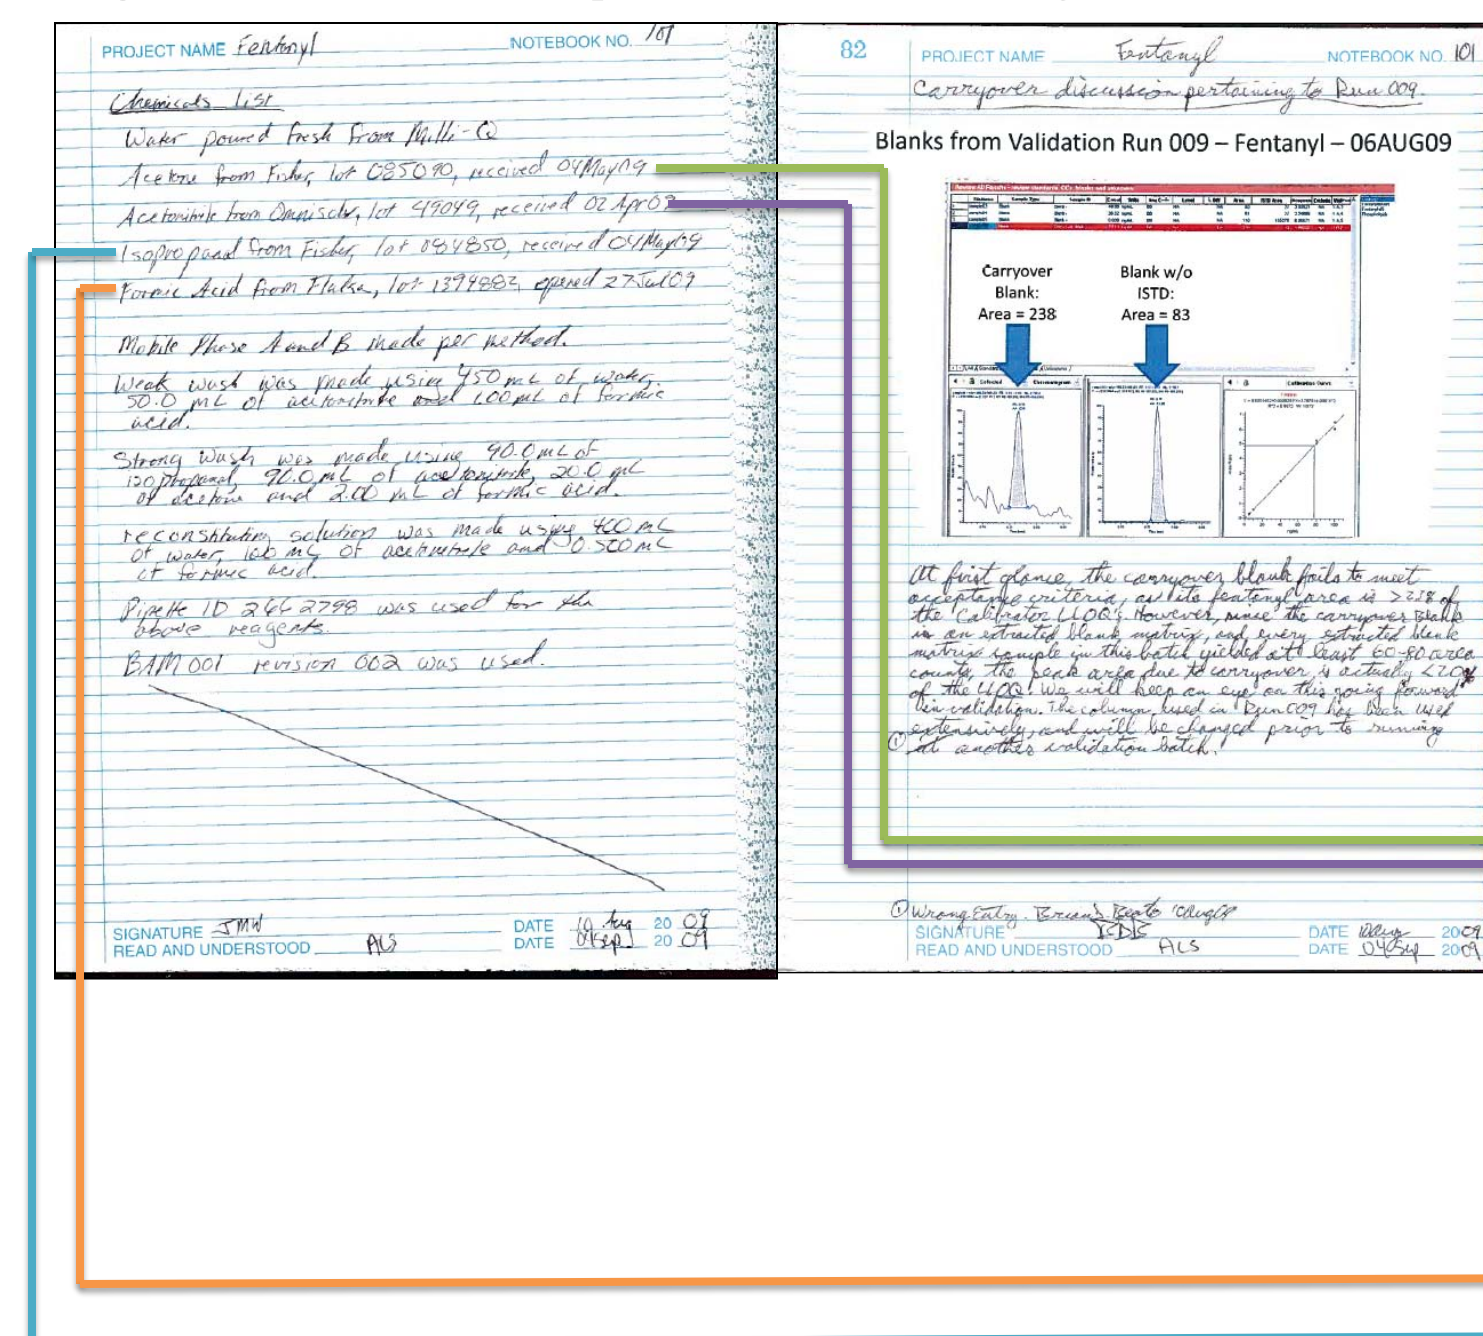 PROJECT NAME Fentanyl NOTEBOOK NO. 101
Chemicals list
Water poured fresh from Milli-Q
Acetone from Fisher, lot 085090, received 04May09
Acetonitrile from Omnisolv, lot 49049, received 02Apr09
Isopropanol from Fisher, lot 084850, received 04May09
Formic Acid from Fluka, lot 1394882, opened 27Jul09
Mobile Phase A and B made per method.
Weak wash was made using 450 mL of water,
50.0 mL of acetonitrile and 1.00 mL of formic
acid.
Strong wash was made using 90.0 mL of
isopropanol, 90.0 mL of acetonitrile, 20.0 mL
of acetone and 2.00 mL of formic acid.
reconstitution solution was made using 400 mL
of water, 100 mL of acetonitrile and 0.500 mL
of formic acid.
Pipette ID 2662798 was used for the
above reagents.
BAM001 revision 002 was used.
SIGNATURE JMW DATE 10 Aug 20 09
READ AND UNDERSTOOD ALS DATE 04Sep 20 09
82 PROJECT NAME Fentanyl NOTEBOOK NO. 101
Carryover discussion pertaining to Run 009.
Blanks from Validation Run 009 – Fentanyl – 06AUG09
Carryover
Blank:
Area = 238
Blank w/o
ISTD:
Area = 83
At first glance, the carryover blank fails to meet
acceptance criteria, as its fentanyl area is > of
the Calibrator LLOQ's. However, since the carryover Blank
is an extracted blank matrix, and every extracted blank
matrix sample in this batch yielded at least 60-80 area
counts, the peak area due to carryover is actually <20%
of the LLOQ. We will keep an eye on this going forward
in validation. The column used in Run 009 has been used
extensively, and will be changed prior to running
① at another validation batch.
① Wrong Entry. Brian
SIGNATURE DATE 10Aug 2009
READ AND UNDERSTOOD ALS DATE 04Sep 2009